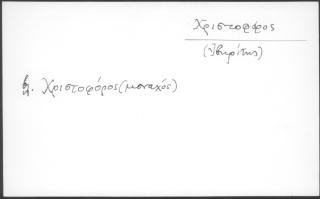 Χριστοφορος
(Ἰβηρίτης)
βλ. Χριστοφόρος (μοναχός)